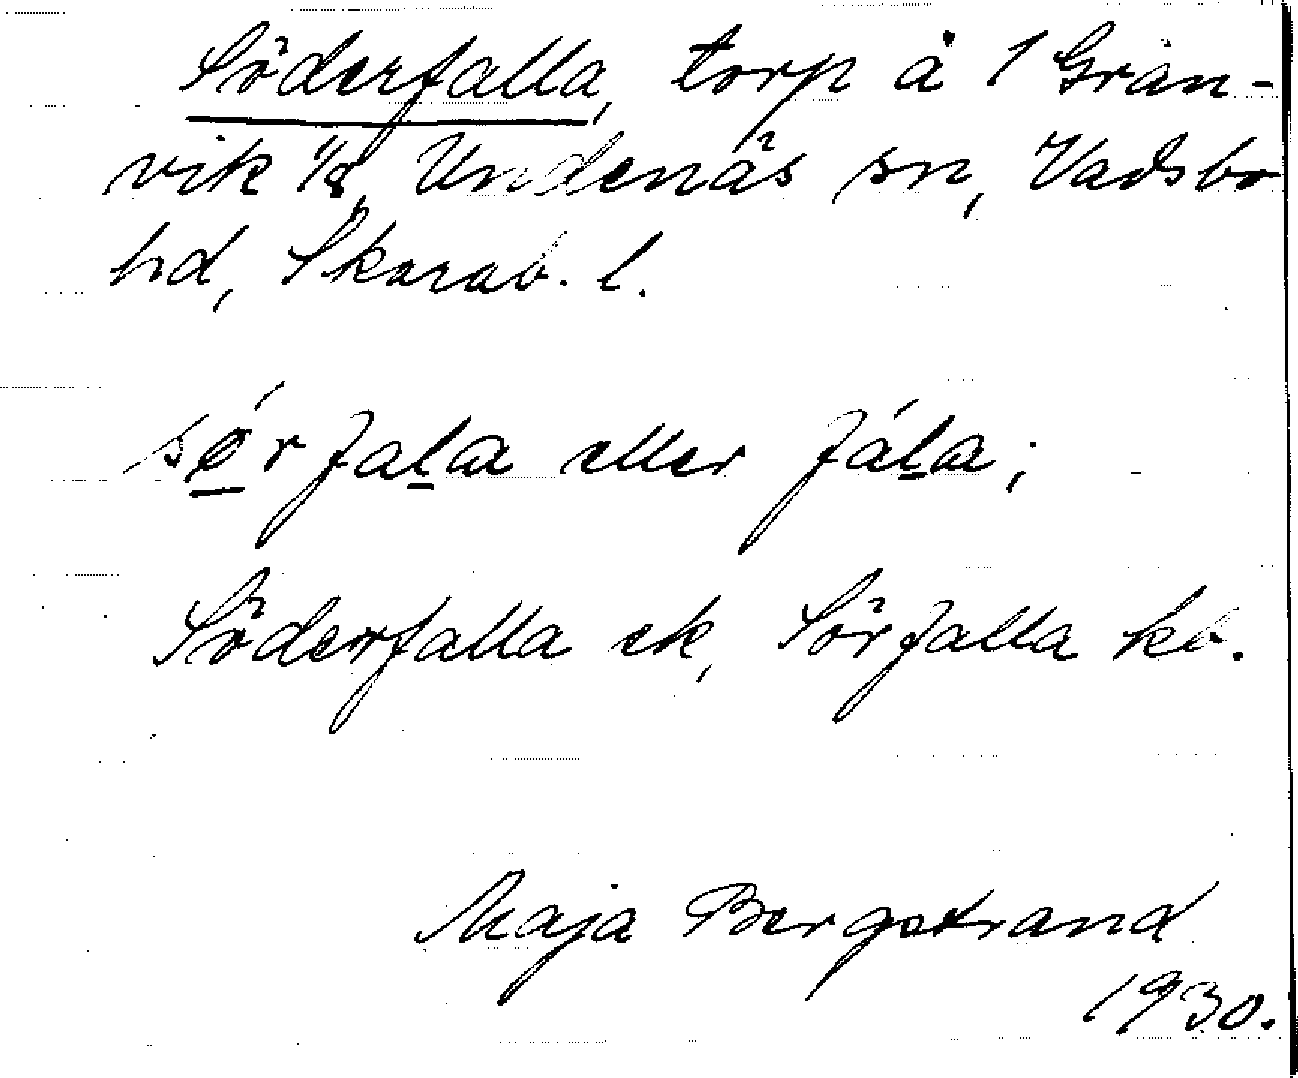 Söderfalla, torp å 1 Grän-
vik 1/8, Undenäs sn, Vadsbo
hd, Skarab. l.
sö́rfala eller fála;
Söderfalla ek, Sörfalla kb.
Maja Bergstrand
1930.